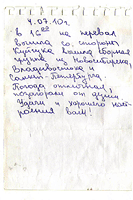 4.07.10г.
В 16⁰⁰ на перевал
вышла со стороны
Кынгырга вышла сборная
группа из Новосибирска,
Владивостока и
Санкт-Петербурга.
Погода отличная!
поздравляем от души!
Удачи и хорошего наст-
роения всем!